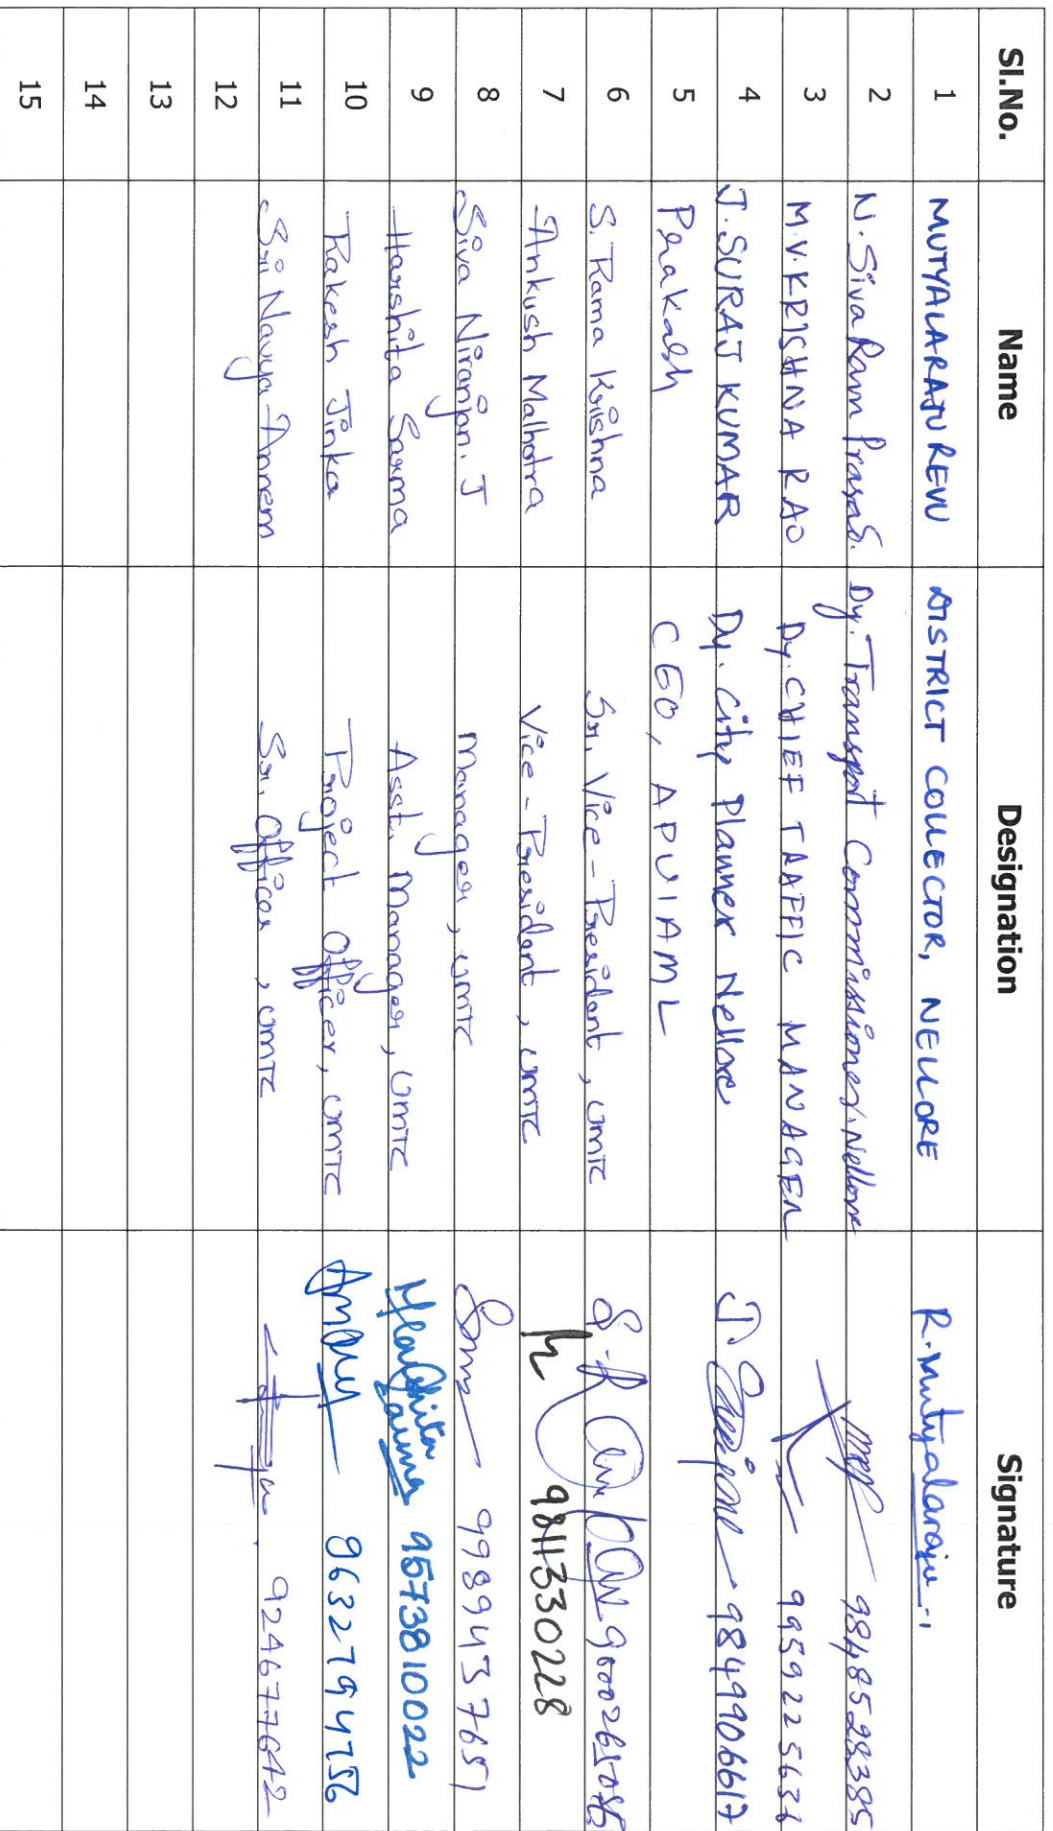 Sl.No. Name Designation Signature
1 MUTYALARAJU REVU DISTRICT COLLECTOR, NELLORE R. Mutyalaraju
2 N. Siva Ram Prasad. Dy. Transport Commissioner, Nellore 9848528385
3 M.V. KRISHNA RAO Dy. CHIEF TRAFFIC MANAGER 9959225636
4 J. SURAJ KUMAR Dy. City Planner Nellore J. 9849906617
5 Prakash CEO, APUIAML
6 S. Rama Krishna Sr. Vice-President, UMTC S. R 9000265086
7 Ankush Malhotra Vice-President, UMTC 9811330228
8 Siva Niranjan. J Manager, UMTC 9989437651
9 Harshita Sarma Asst. Manager, UMTC Harshita Sarma 9573810022
10 Rakesh Jinka Project Officer, UMTC 9632794756
11 Sri Navya Annem Sr. Officer, UMTC 9246777642
12
13
14
15